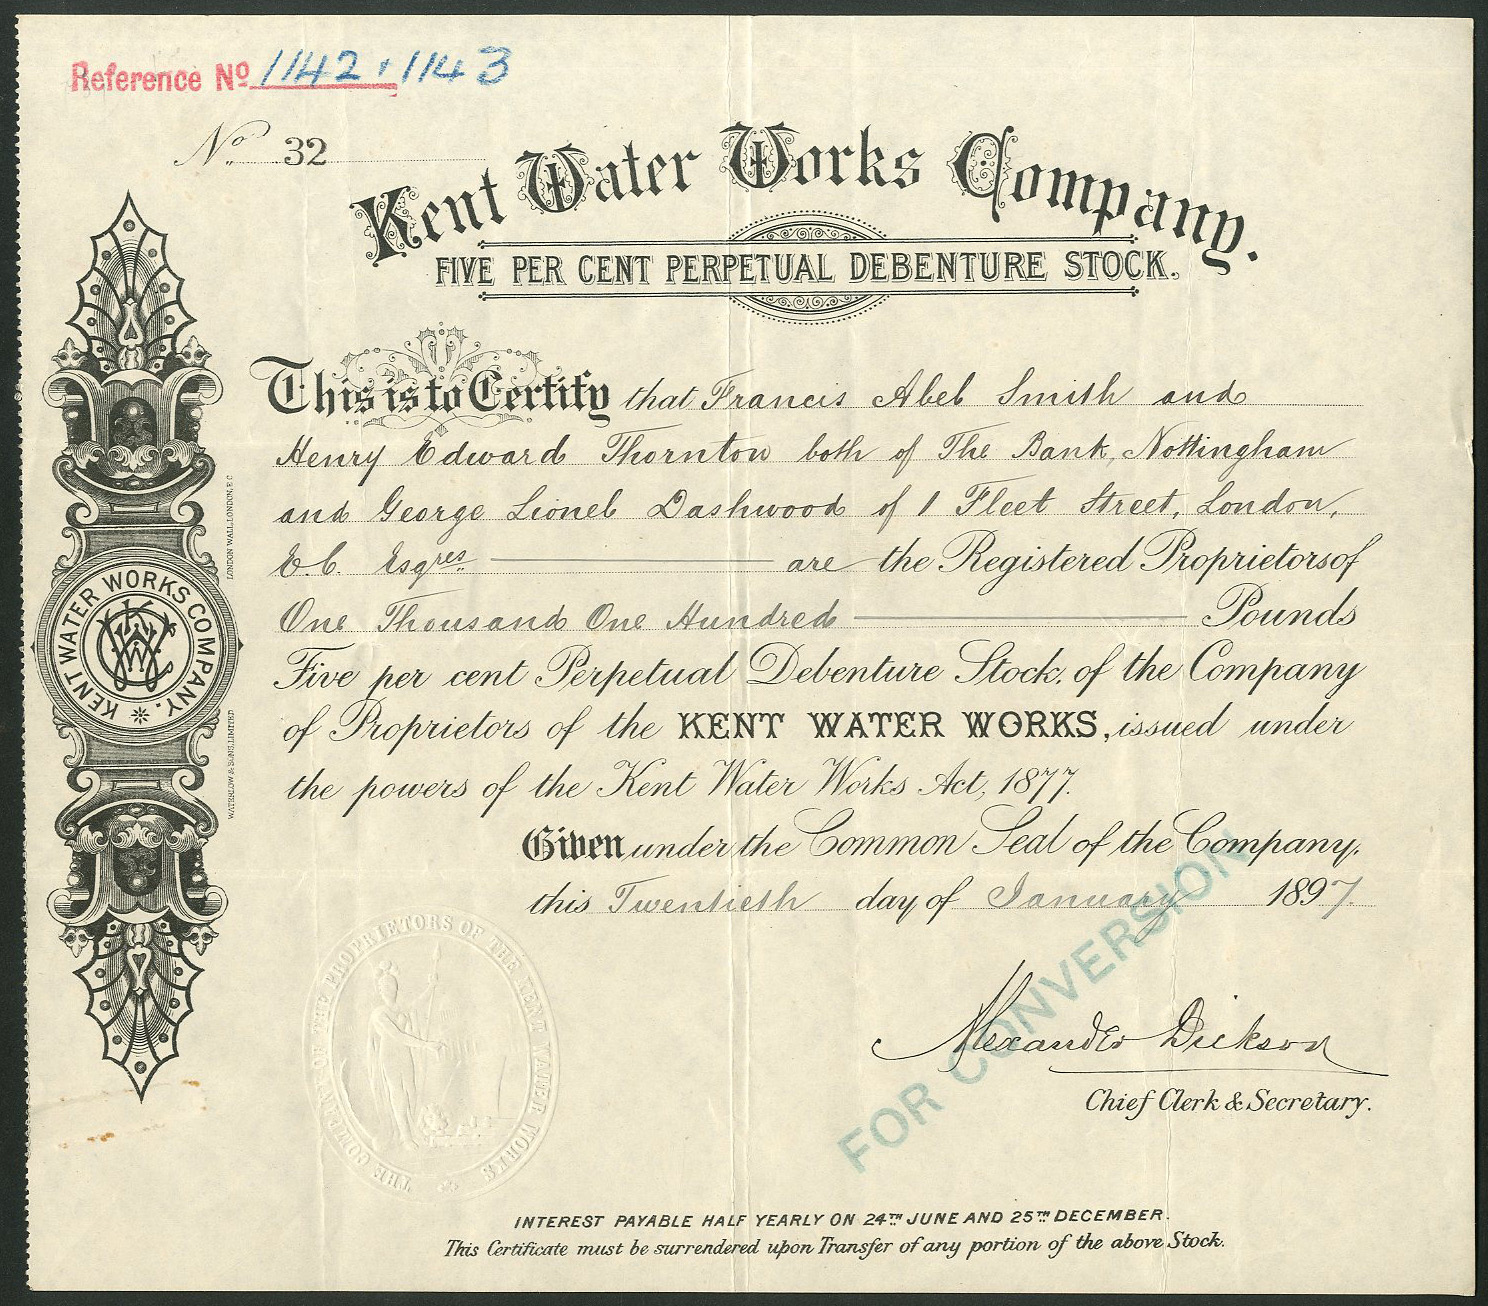 Reference No 1142 · 1143
No. 32
Kent Water Works Company.
FIVE PER CENT PERPETUAL DEBENTURE STOCK.
This is to Certify that Francis Abel Smith and
Henry Edward Thornton both of The Bank, Nottingham
and George Lionel Dashwood of 1 Fleet Street, London,
E.C. Esqres. are the Registered Proprietors of
One Thousand One Hundred Pounds
Five per cent Perpetual Debenture Stock, of the Company
of Proprietors of the KENT WATER WORKS, issued under
the powers of the Kent Water Works Act, 1877.
Given under the Common Seal of the Company,
this Twentieth day of January 1897.
FOR CONVERSION
Alexander Dickson
Chief Clerk & Secretary.
INTEREST PAYABLE HALF YEARLY ON 24TH JUNE AND 25TH DECEMBER.
This Certificate must be surrendered upon Transfer of any portion of the above Stock.
KENT WATER WORKS COMPANY.
KWWC
WATERLOW & SONS, LIMITED
LONDON WALL, LONDON, E C
THE COMPANY OF THE PROPRIETORS OF THE KENT WATER WORKS